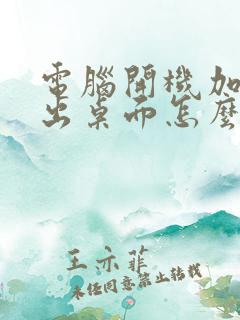 電腦開機加
出桌面怎麼
王亦菲
未经同意禁止转载